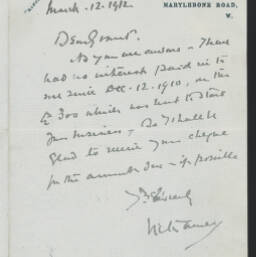 MARYLEBONE ROAD,
W.
March. 12. 1912
Dear Grant.
As you are aware - I have
had no interest paid in to
me since Dec - 12 - 1910, on the
£300 which was lent to start
your business - So I shall be
glad to receive your cheque
for the amount due - if possible
Yrs Sincerely